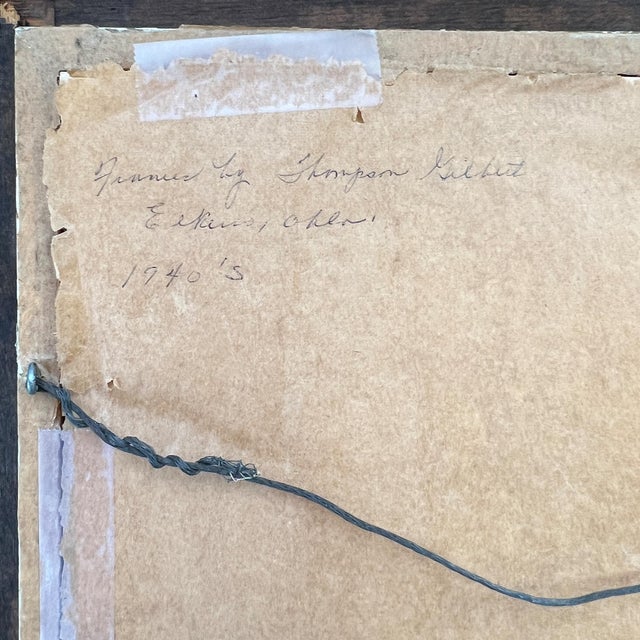 Framed by Thompson Gilbert
Elkins, Okla.
1940's